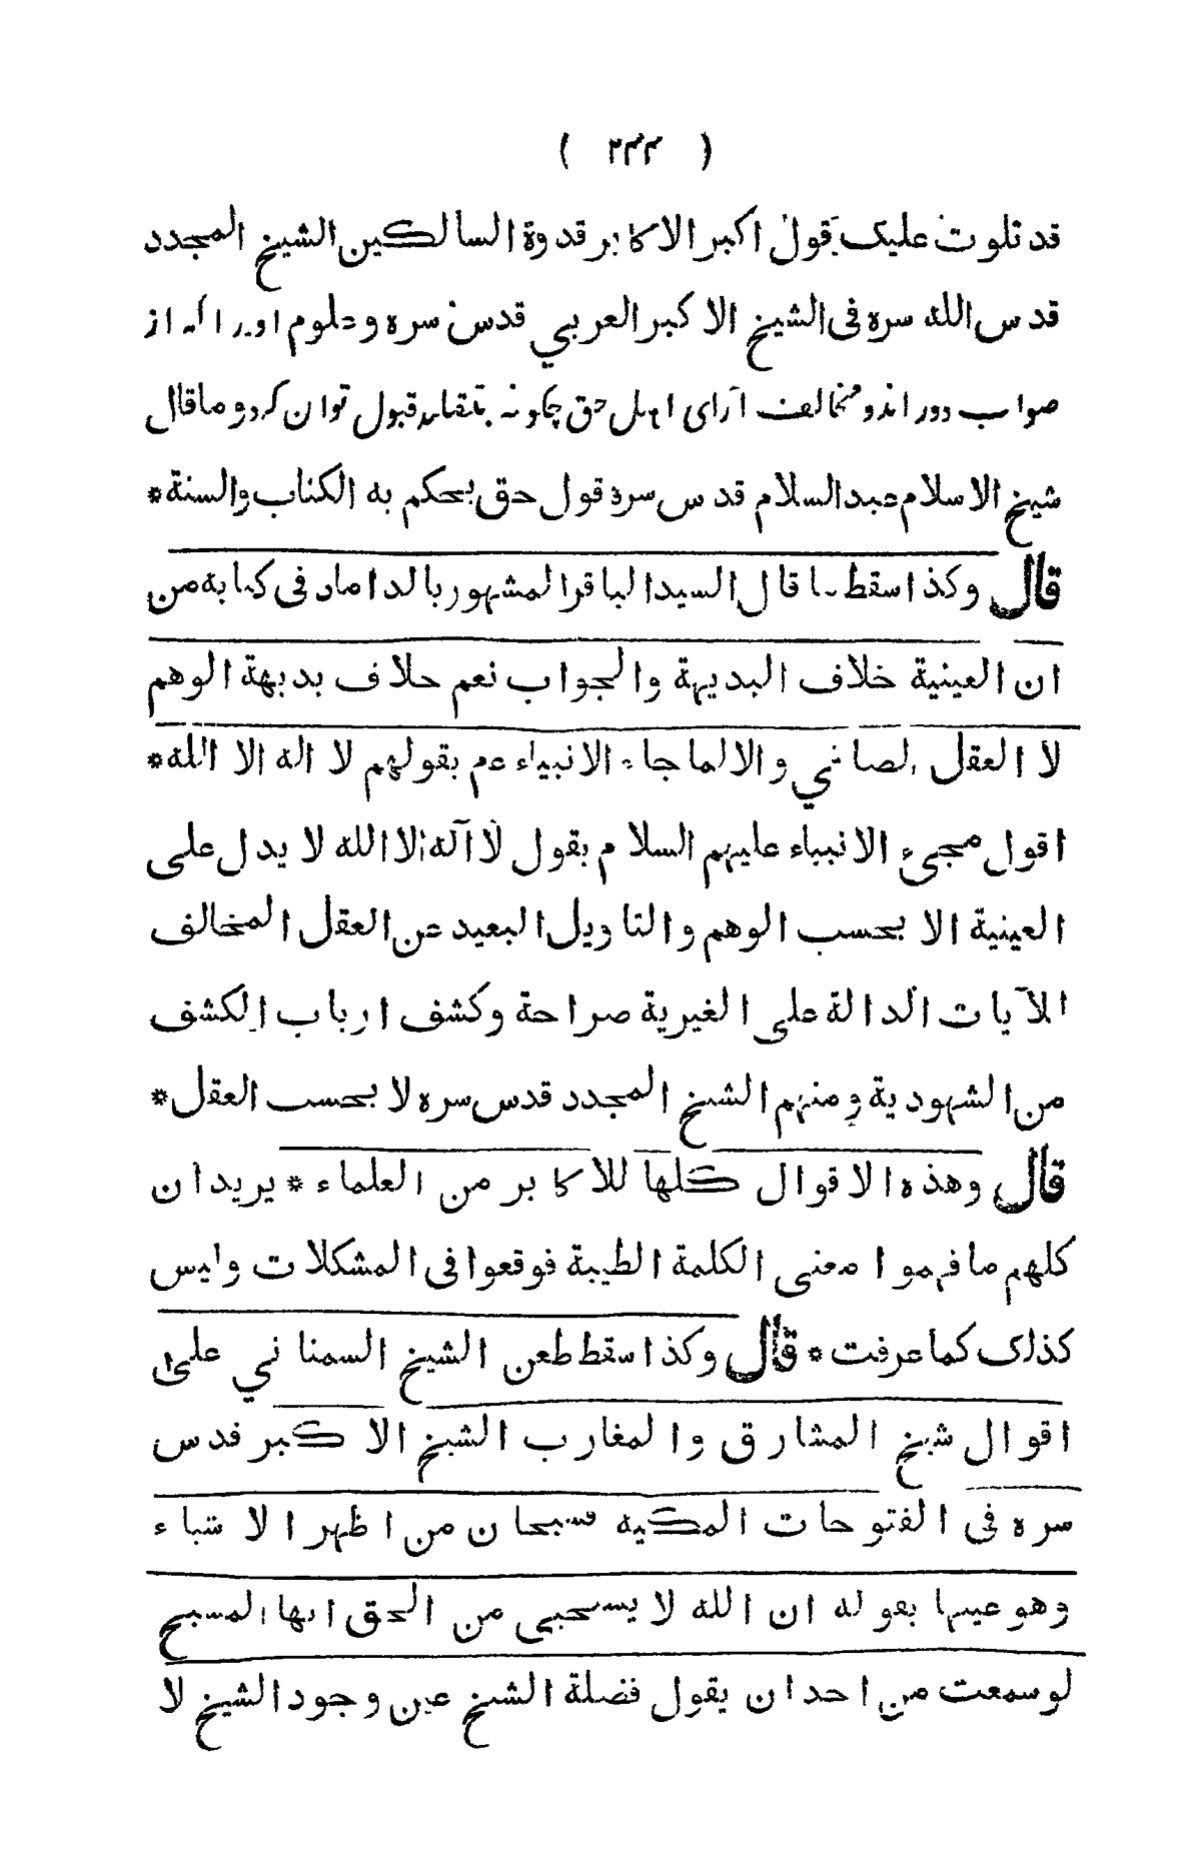 ( ٢٣٣ )
قد تلوت عليك قول اكبر الاكابر قدوة السالكين الشيخ المجدد
قدس الله سره فى الشيخ الاكبر العربي قدس سره وعلوم اورا كه از
صواب دور اند ومخالف آراى اهل حق چگونه بتقليد قبول توان كرد وما قال
شيخ الاسلام عبد السلام قدس سره قول حق يحكم به الكتاب والسنة *
قال وكذا سقط ما قال السيد الباقر المشهور بالداماد فى كتابه من
ان العينية خلاف البديهة والجواب نعم خلاف بديهة الوهم
لا العقل الصافي والا لما جاء الانبياء عم بقولهم لا اله الا الله *
اقول مجىء الانبياء عليهم السلام بقول لا آله الا الله لا يدل على
العينية الا بحسب الوهم والتاويل البعيد عن العقل المخالف
للآيات الدالة على الغيرية صراحة وكشف ارباب الكشف
من الشهودية ومنهم الشيخ المجدد قدس سره لا بحسب العقل *
قال وهذه الاقوال كلها للاكابر من العلماء * يريد ان
كلهم ما فهموا معنى الكلمة الطيبة فوقعوا فى المشكلات وليس
كذلك كما عرفت * قال وكذا سقط طعن الشيخ السمناني على
اقوال شيخ المشارق والمغارب الشيخ الاكبر قدس
سره فى الفتوحات المكيه فسبحان من اظهر الاشياء
وهو عينها بقوله ان الله لا يستحيى من الحق ايها المسبح
لو سمعت من احد ان يقول فضلة الشيخ عين وجود الشيخ لا